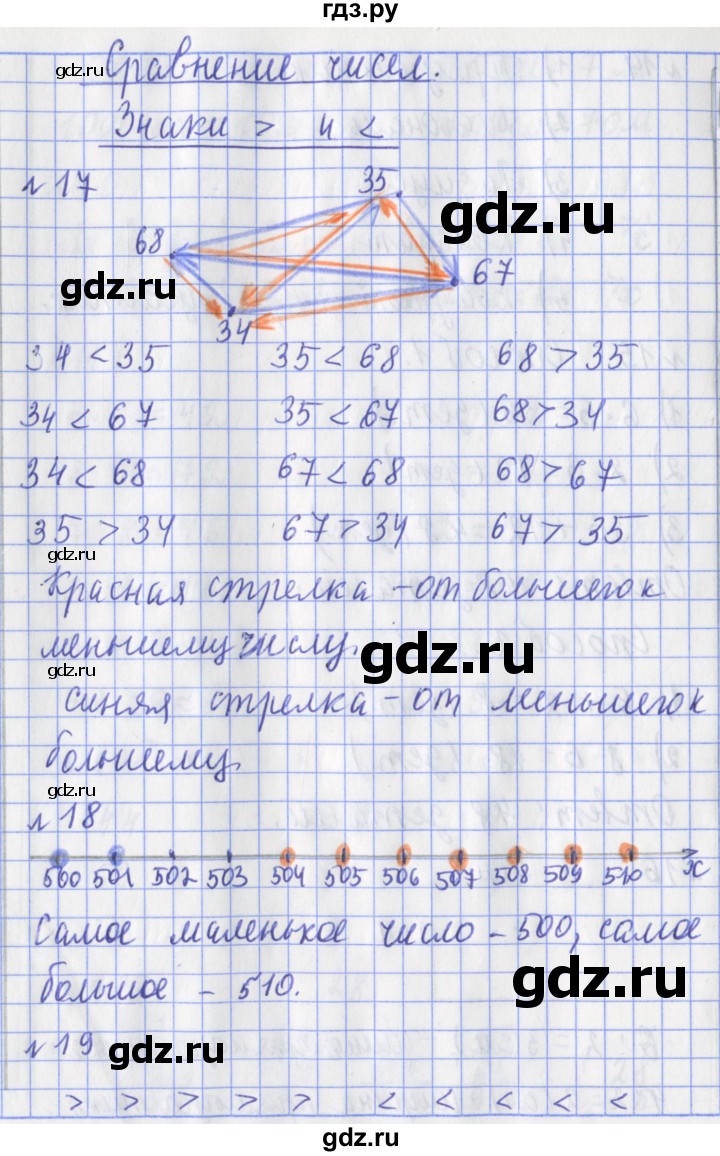 гдз.ру
Сравнение чисел.
Знаки > и <
№17
35
68
67
34
34 < 35 35 < 68 68 > 35
34 < 67 35 < 67 68 > 34
34 < 68 67 < 68 68 > 67
35 > 34 67 > 34 67 > 35
Красная стрелка – от большего к
меньшему числу.
Синяя стрелка – от меньшего к
большему.
№18
500 501 502 503 504 505 506 507 508 509 510 x
Самое маленькое число – 500, самое
большое – 510.
№19
> > > > > < < < < <
gdz.ru
gdz.ru
gdz.ru
gdz.ru
gdz.ru
gdz.ru
gdz.ru
gdz.ru
gdz.ru
gdz.ru
gdz.ru
gdz.ru
gdz.ru